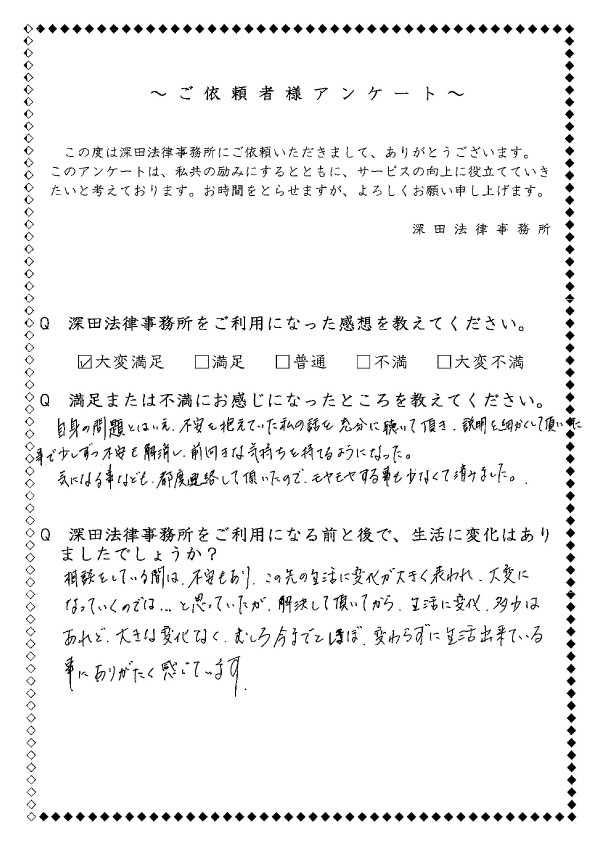 ～ご依頼者様アンケート～
この度は深田法律事務所にご依頼いただきまして、ありがとうございます。
このアンケートは、私共の励みにするとともに、サービスの向上に役立てていき
たいと考えております。お時間をとらせますが、よろしくお願い申し上げます。
深田法律事務所
Q 深田法律事務所をご利用になった感想を教えてください。
☑大変満足 □満足 □普通 □不満 □大変不満
Q 満足または不満にお感じになったところを教えてください。
自身の問題とはいえ、不安を抱えていた私の話を充分に聴いて頂き、説明を細かくして頂いた
事で少しずつ不安も解消し、前向きな気持ちを持てるようになった。
気になる事なども、都度連絡して頂いたので、モヤモヤする事も少なくて済みました。
Q 深田法律事務所をご利用になる前と後で、生活に変化はあり
ましたでしょうか？
相談をしている間は、不安もあり、この先の生活に変化が大きく表われ、大変に
なっていくのでは…と思っていたが、解決して頂いてから、生活に変化、多少は
あれど、大きな変化なく、むしろ今までとほぼ、変わらずに生活出来ている
事にありがたく感じています。